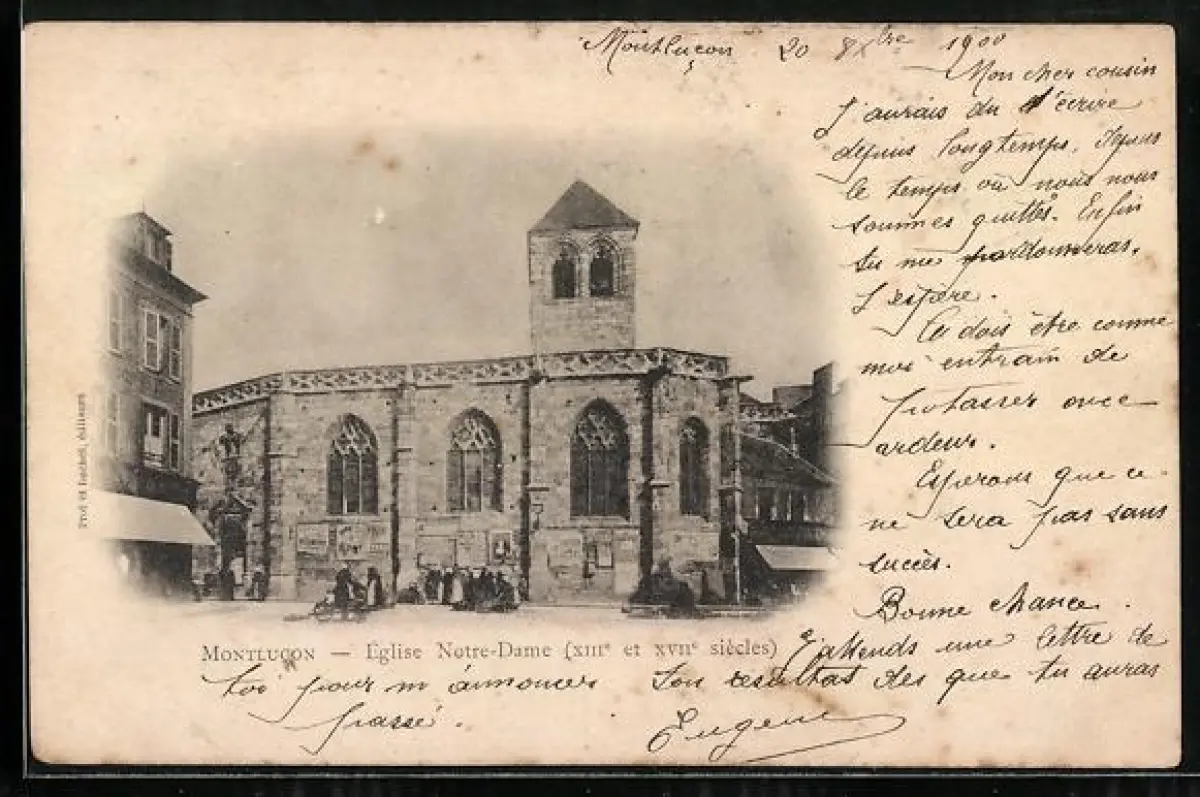 Montluçon 20 Xbre 1900
Mon cher cousin
J'aurais du t'écrire
depuis longtemps, depuis
le temps où nous nous
sommes quittés. Enfin
tu me pardonneras,
j'espère.
Tu dois être comme
moi entrain de
potasser avec
ardeur.
Esperons que ce
ne sera pas sans
succès.
Bonne chance.
J'attends une lettre de
toi pour m'annoncer ton resultat des que tu auras
passé.
Eugene
MONTLUÇON — Église Notre-Dame (XIIIe et XVIIe siècles)
éditeurs